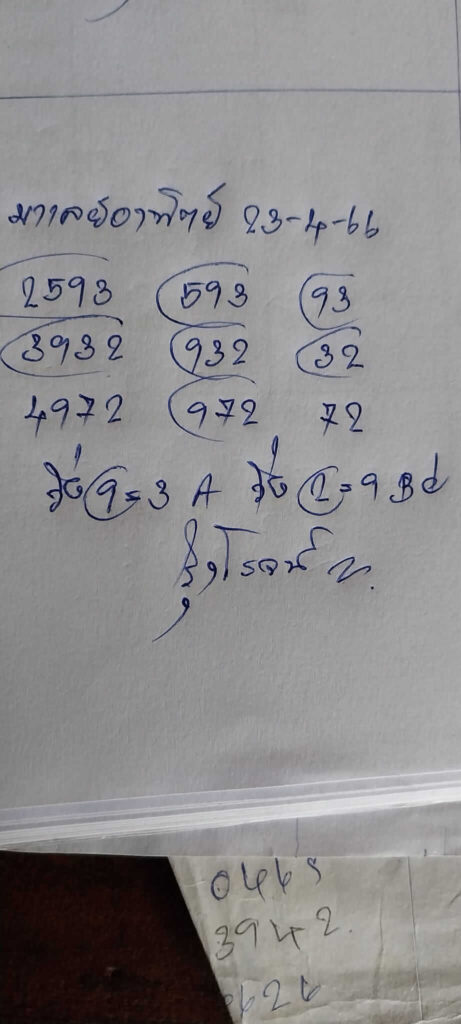 มาเลย์อาทิตย์ 23-4-66
2593 593 93
3932 932 32
4972 972 72
วิ่ง 9=3 A วิ่ง 2=9 B
รุ่งโรจน์
0465
3942.
626